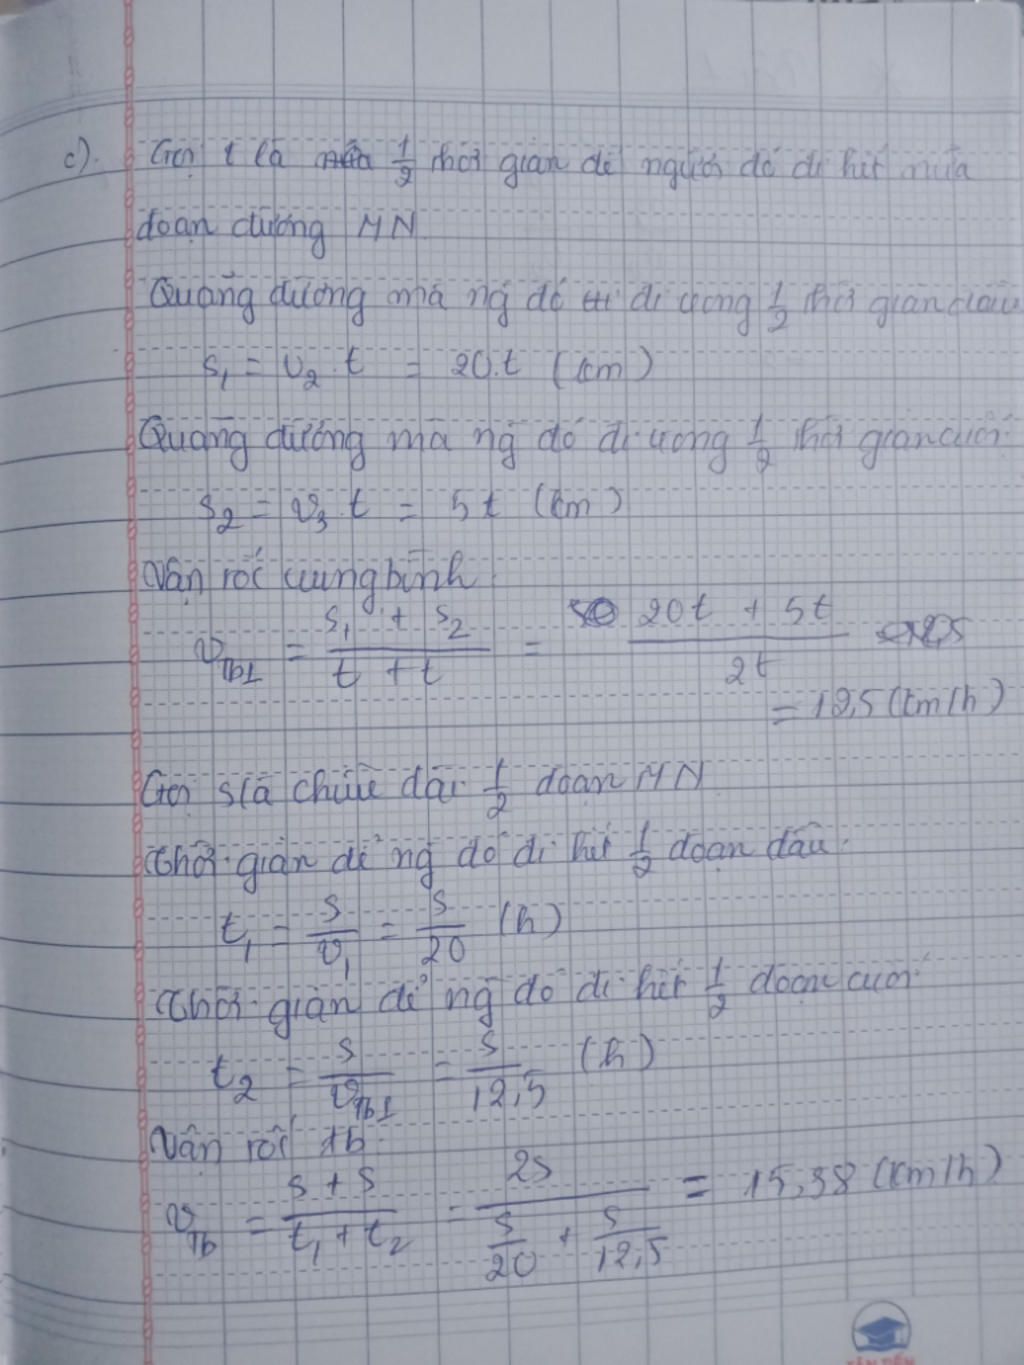 c). Gọi t là nửa 1/2 thời gian để người đó đi hết nửa
đoạn đường MN
Quãng đường mà ng đó đi trong 1/2 thời gian đầu
s₁ = v₂ . t = 20.t (km)
Quãng đường mà ng đó đi trong 1/2 thời gian cuối
s₂ = v₃ . t = 5t (km)
Vận tốc trung bình
v_Tb1 = (s₁ + s₂)/(t + t) = (20t + 5t)/2t
= 12,5 (km/h)
Gọi s là chiều dài 1/2 đoạn MN
Thời gian để ng đó đi hết 1/2 đoạn đầu
t₁ = s/v₁ = s/20 (h)
Thời gian để ng đó đi hết 1/2 đoạn cuối
t₂ = s/v_Tb1 = s/12,5 (h)
Vận tốc tb
v_Tb = (s + s)/(t₁ + t₂) = 2s/(s/20 + s/12,5) = 15,38 (km/h)